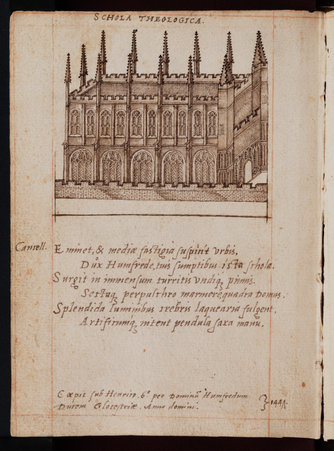 SCHOLA THEOLOGICA.
Cancell. Eminet, & mediæ fastigia suspicit Vrbis,
Dux Humfrede, tuis sumptibus ista schola.
Surgit in immensum turritis undiq, pinnis,
Sectaq, perpulchro marmore quadra Domus.
Splendida luminibus crebris laquearia fulgent,
Artificumq, nitent pendula saxa manu.
Cœpit sub Henrico. 6º. per Dominū Humfredum
Ducem Glocestriæ. Anno domini.